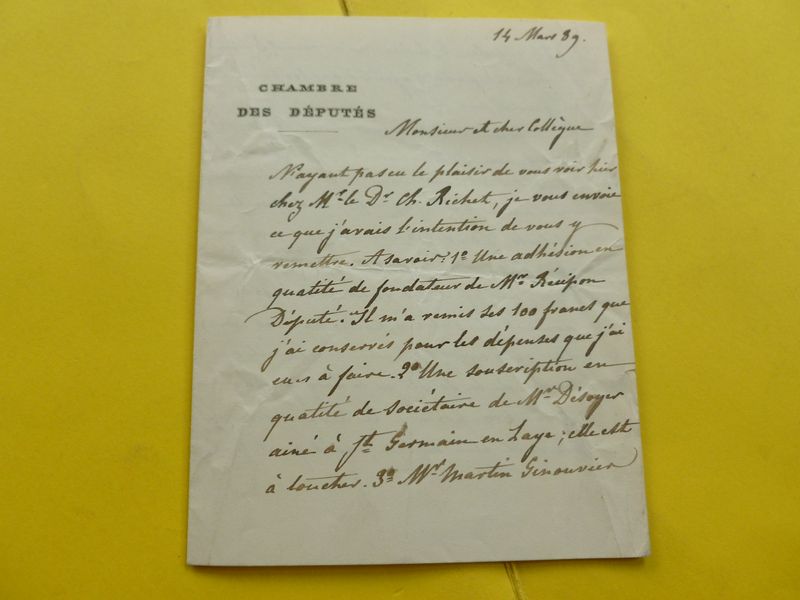 14 Mars 89.
CHAMBRE
DES DÉPUTÉS
Monsieur et cher Collègue
N'ayant pas eu le plaisir de vous voir hier
chez Mr. le Dr Ch. Richet, je vous envoie
ce que j'avais l'intention de vous y
remettre. A savoir: 1º Une adhésion en
quatité de fondateur de Mr. Récipon
Député. Il m'a remis ses 100 francs que
j'ai conservés pour les dépenses que j'ai
eues à faire. 2º Une souscription en
quatité de sociétaire de Mr. Désoyer
ainé à St. Germain en Laye; elle est
à toucher. 3º Mr Martin Ginouvier